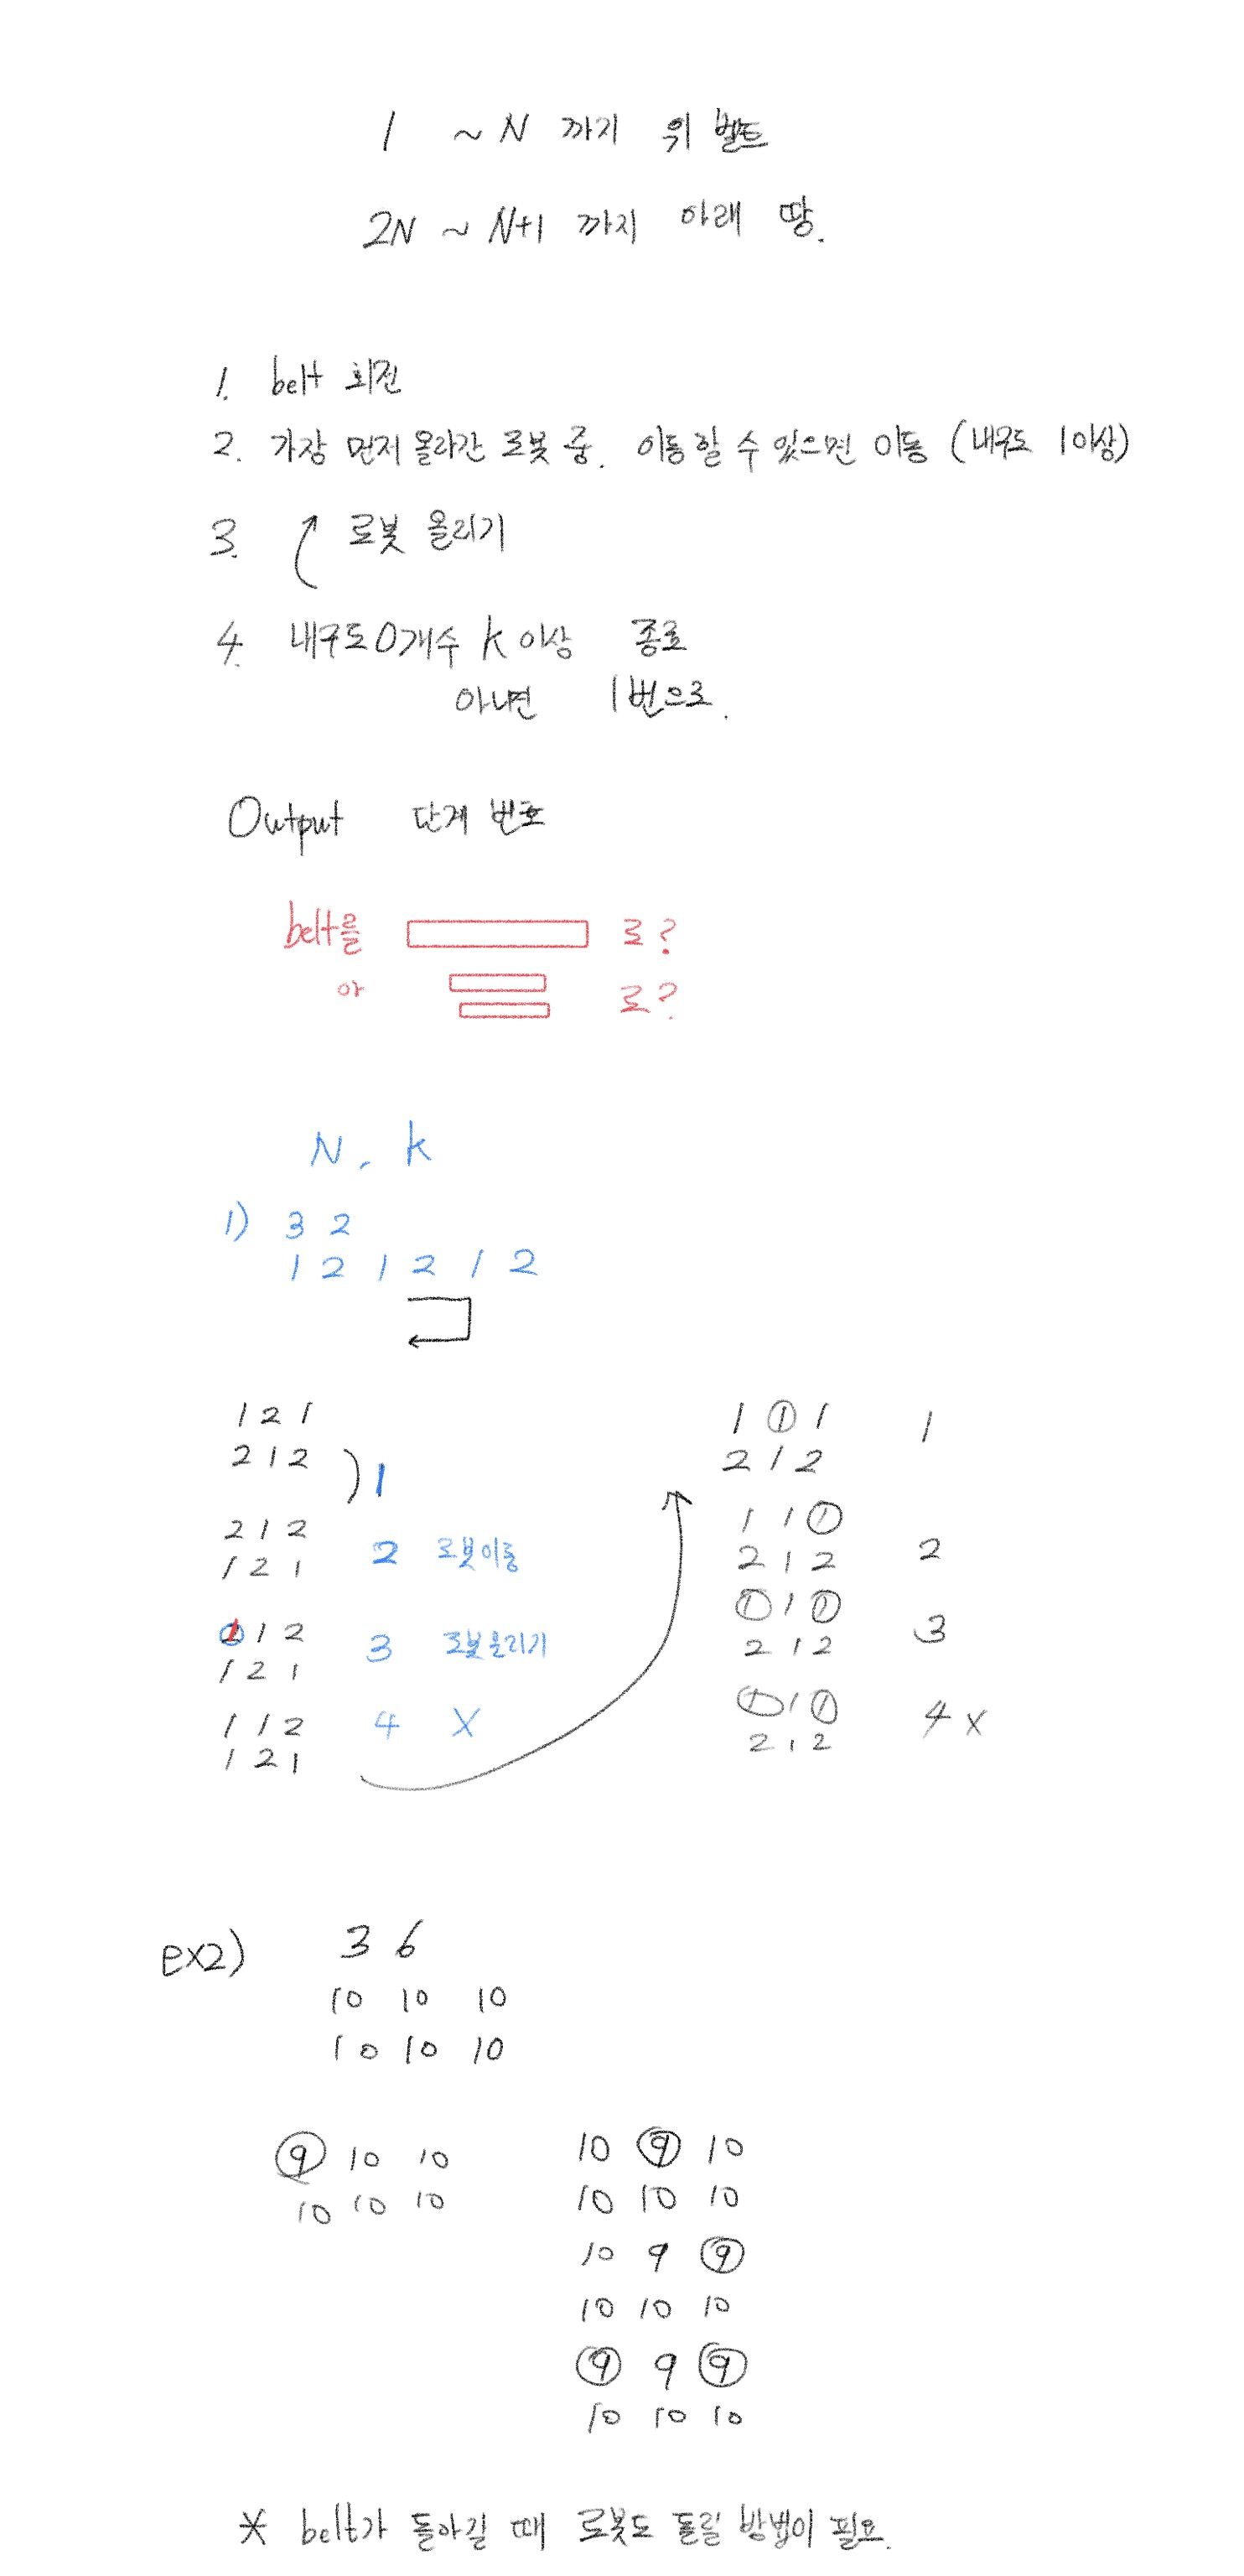 1 ~ N 까지 위 벨트
2N ~ N+1 까지 아래 땅.
1. belt 회전
2. 가장 먼저 올라간 로봇 중. 이동할 수 있으면 이동 (내구도 1이상)
3. 로봇 올리기
4. 내구도 0개수 k 이상 종료
아니면 1번으로.
Output 단계 번호
belt를 로?
아 로?
N, k
1) 3 2
1 2 1 2 1 2
1 2 1
2 1 2
1
2 1 2
1 2 1
2 로봇이동
1 1 2
1 2 1
3 로봇올리기
1 1 2
1 2 1
4 X
1 1 1
2 1 2
1
1 1 1
2 1 2
2
1 1 1
2 1 2
3
1 1 1
2 1 2
4 x
ex2) 3 6
10 10 10
10 10 10
9 10 10
10 10 10
10 9 10
10 10 10
10 9 9
10 10 10
9 9 9
10 10 10
* belt가 돌아갈 때 로봇도 돌릴 방법이 필요.